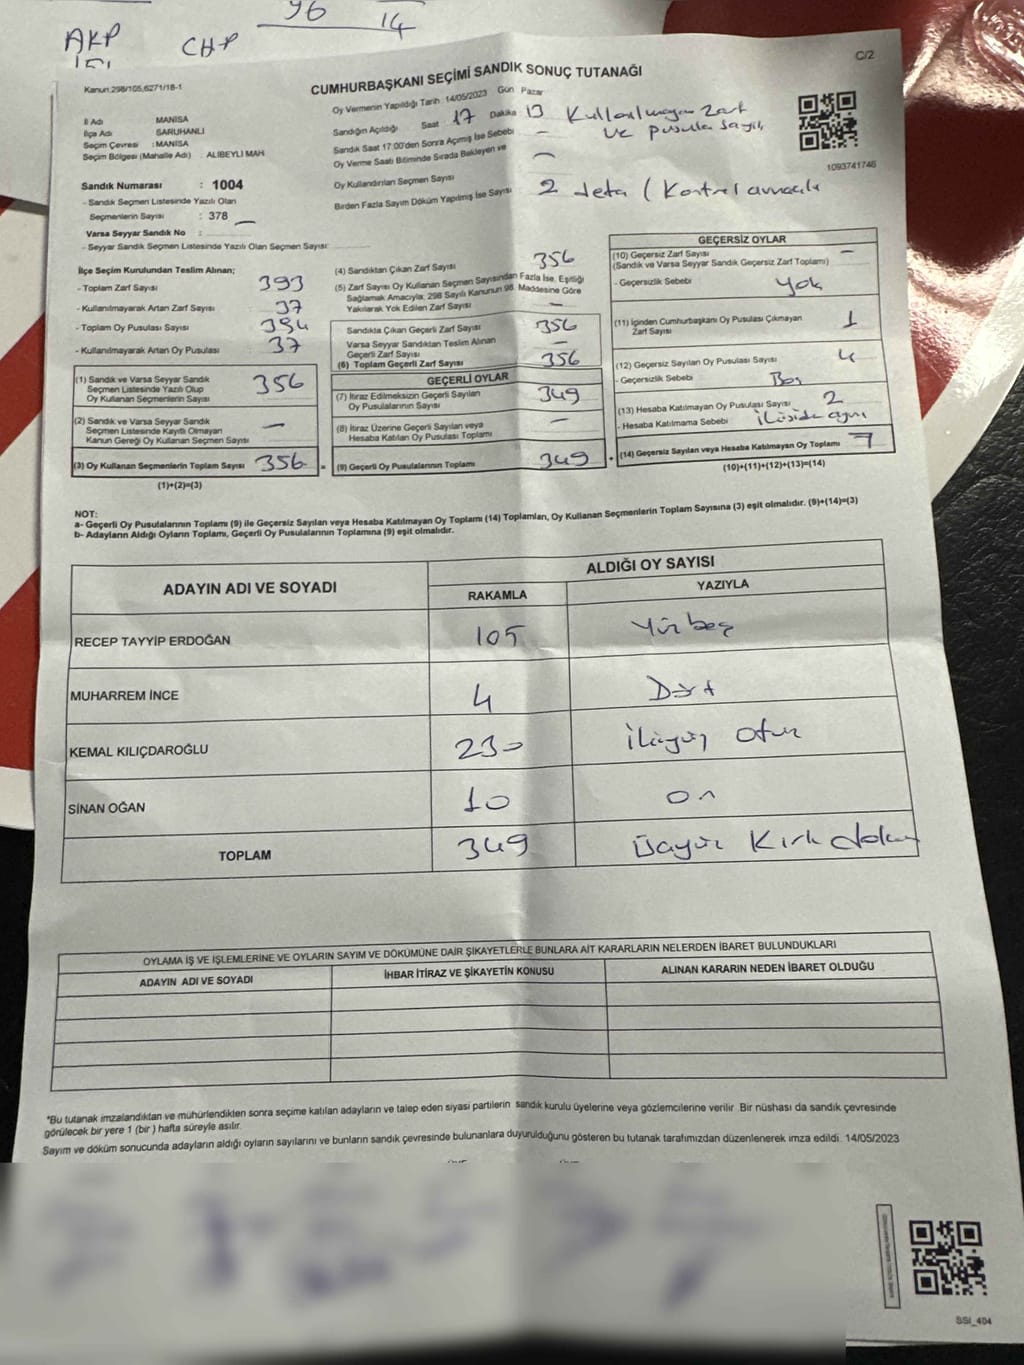 96 14
AKP
CHP
151
C/2
Kanun:298/105,6271/18-1
CUMHURBAŞKANI SEÇİMİ SANDIK SONUÇ TUTANAĞI
Oy Vermenin Yapıldığı Tarih :14/05/2023 Gün Pazar
İl Adı MANİSA
İlçe Adı SARUHANLI
Seçim Çevresi : MANİSA
Seçim Bölgesi (Mahalle Adı) : ALİBEYLİ MAH.
Sandığın Açıldığı Saat 17 Dakika 13
Sandık Saat 17:00'den Sonra Açımış İse Sebebi —
Oy Verme Saati Bitiminde Sırada Bekleyen ve
Oy Kullandırılan Seçmen Sayısı —
Birden Fazla Sayım Döküm Yapılmış İse Sayısı 2
Kullanılmayan zarf
ve pusula sayılı
defa (Kontrol amacıyla
1093741746
Sandık Numarası : 1004
- Sandık Seçmen Listesinde Yazılı Olan
Seçmenlerin Sayısı : 378 —
Varsa Seyyar Sandık No :
- Seyyar Sandık Seçmen Listesinde Yazılı Olan Seçmen Sayısı:
İlçe Seçim Kurulundan Teslim Alınan;
- Toplam Zarf Sayısı 393
- Kullanılmayarak Artan Zarf Sayısı 37
- Toplam Oy Pusulası Sayısı 394
- Kullanılmayarak Artan Oy Pusulası 37
(1) Sandık ve Varsa Seyyar Sandık
Seçmen Listesinde Yazılı Olup
Oy Kullanan Seçmenlerin Sayısı 356
(2) Sandık ve Varsa Seyyar Sandık
Seçmen Listesinde Kayıtlı Olmayan
Kanun Gereği Oy Kullanan Seçmen Sayısı —
(3) Oy Kullanan Seçmenlerin Toplam Sayısı 356 =
(1)+(2)=(3)
(4) Sandıktan Çıkan Zarf Sayısı 356
(5) Zarf Sayısı Oy Kullanan Seçmen Sayısından Fazla İse, Eşitliği
Sağlamak Amacıyla, 298 Sayılı Kanunun 98. Maddesine Göre
Yakılarak Yok Edilen Zarf Sayısı —
Sandıkta Çıkan Geçerli Zarf Sayısı 356
Varsa Seyyar Sandıktan Teslim Alınan
Geçerli Zarf Sayısı —
(6) Toplam Geçerli Zarf Sayısı 356
GEÇERLİ OYLAR
(7) İtiraz Edilmeksizin Geçerli Sayılan
Oy Pusulalarının Sayısı 349
(8) İtiraz Üzerine Geçerli Sayılan veya
Hesaba Katılan Oy Pusulası Toplamı —
(9) Geçerli Oy Pusulalarının Toplamı 349 +
GEÇERSİZ OYLAR
(10) Geçersiz Zarf Sayısı —
(Sandık ve Varsa Seyyar Sandık Geçersiz Zarf Toplamı)
- Geçersizlik Sebebi yok
(11) İçinden Cumhurbaşkanı Oy Pusulası Çıkmayan
Zarf Sayısı 1
(12) Geçersiz Sayılan Oy Pusulası Sayısı 4
- Geçersizlik Sebebi Boş
(13) Hesaba Katılmayan Oy Pusulası Sayısı 2
- Hesaba Katılmama Sebebi ikiside aynı
(14) Geçersiz Sayılan veya Hesaba Katılmayan Oy Toplamı 7
(10)+(11)+(12)+(13)=(14)
NOT:
a- Geçerli Oy Pusulalarının Toplamı (9) ile Geçersiz Sayılan veya Hesaba Katılmayan Oy Toplamı (14) Toplamları, Oy Kullanan Seçmenlerin Toplam Sayısına (3) eşit olmalıdır. (9)+(14)=(3)
b- Adayların Aldığı Oyların Toplamı, Geçerli Oy Pusulalarının Toplamına (9) eşit olmalıdır.
ADAYIN ADI VE SOYADI ALDIĞI OY SAYISI
RAKAMLA YAZIYLA
RECEP TAYYİP ERDOĞAN 105 Yüz beş
MUHARREM İNCE 4 Dört
KEMAL KILIÇDAROĞLU 230 ikiyüz otuz
SİNAN OĞAN 10 on
TOPLAM 349 üçyüz Kırk dokuz
OYLAMA İŞ VE İŞLEMLERİNE VE OYLARIN SAYIM VE DÖKÜMÜNE DAİR ŞİKAYETLERLE BUNLARA AİT KARARLARIN NELERDEN İBARET BULUNDUKLARI
ADAYIN ADI VE SOYADI İHBAR İTİRAZ VE ŞİKAYETİN KONUSU ALINAN KARARIN NEDEN İBARET OLDUĞU
*Bu tutanak imzalandıktan ve mühürlendikten sonra seçime katılan adayların ve talep eden siyasi partilerin sandık kurulu üyelerine veya gözlemcilerine verilir. Bir nüshası da sandık çevresinde
görülecek bir yere 1 (bir) hafta süreyle asılır.
Sayım ve döküm sonucunda adayların aldığı oyların sayılarını ve bunların sandık çevresinde bulunanlara duyurulduğunu gösteren bu tutanak tarafımızdan düzenlenerek imza edildi. 14/05/2023
SSI_404